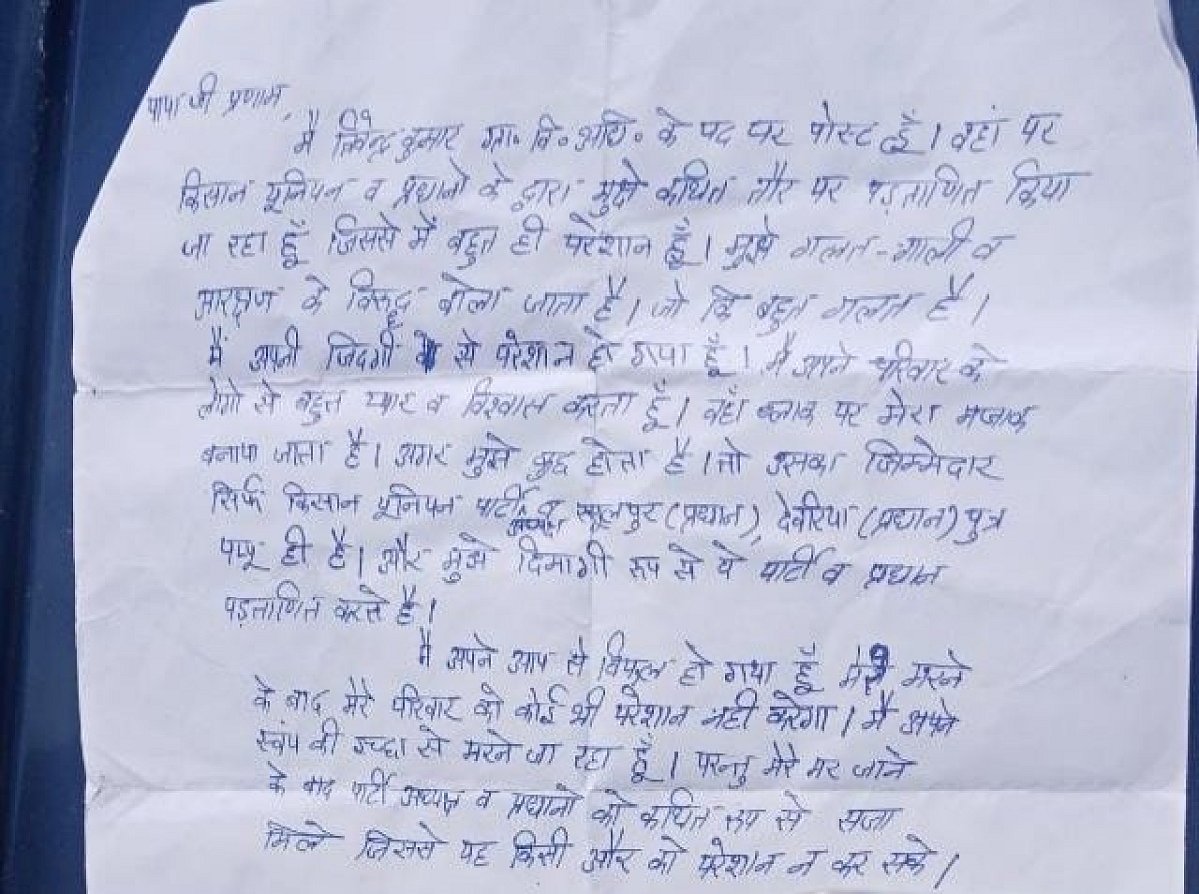 पापा जी प्रणाम,
मै कुमार ग्रा॰ वि॰ अधि॰ के पद पर पोस्ट हूँ। वहां पर
किसान यूनियन व प्रधानो के द्वारा मुझे कथित तौर पर पड़ताणित किया
जा रहा हूँ जिससे में बहुत ही परेशान हूँ। मुझे गलत-गाली व
आरक्षण के विरूद्ध बोला जाता है। जो कि बहुत गलत है।
मैं अपनी जिदगी से परेशान हो गया हूँ। मै अपने परिवार के
लोगो से बहुत प्यार व विश्वास करता हूँ। वहाँ ब्लाक पर मेरा मजाक
बनाया जाता है। अगर मुझे कुछ होता है। तो उसका जिम्मेदार
सिर्फ किसान यूनियन पार्टी अध्यक्ष व रसूलपुर (प्रधान), देवरिया (प्रधान) पुत्र
पप्पू ही है। और मुझे दिमागी रूप से ये पार्टी व प्रधान
पड़ताणित करते है।
मै अपने आप से विफल हो गया हूँ मेरे मरने
के बाद मेरे परिवार को कोई भी परेशान नही करेगा। मै अपने
स्वंय की इच्छा से मरने जा रहा हूँ। परन्तु मेरे मर जाने
के बाद पार्टी अध्यक्ष व प्रधानो को कथित रूप से सजा
मिले जिससे यह किसी और को परेशान न कर सके।